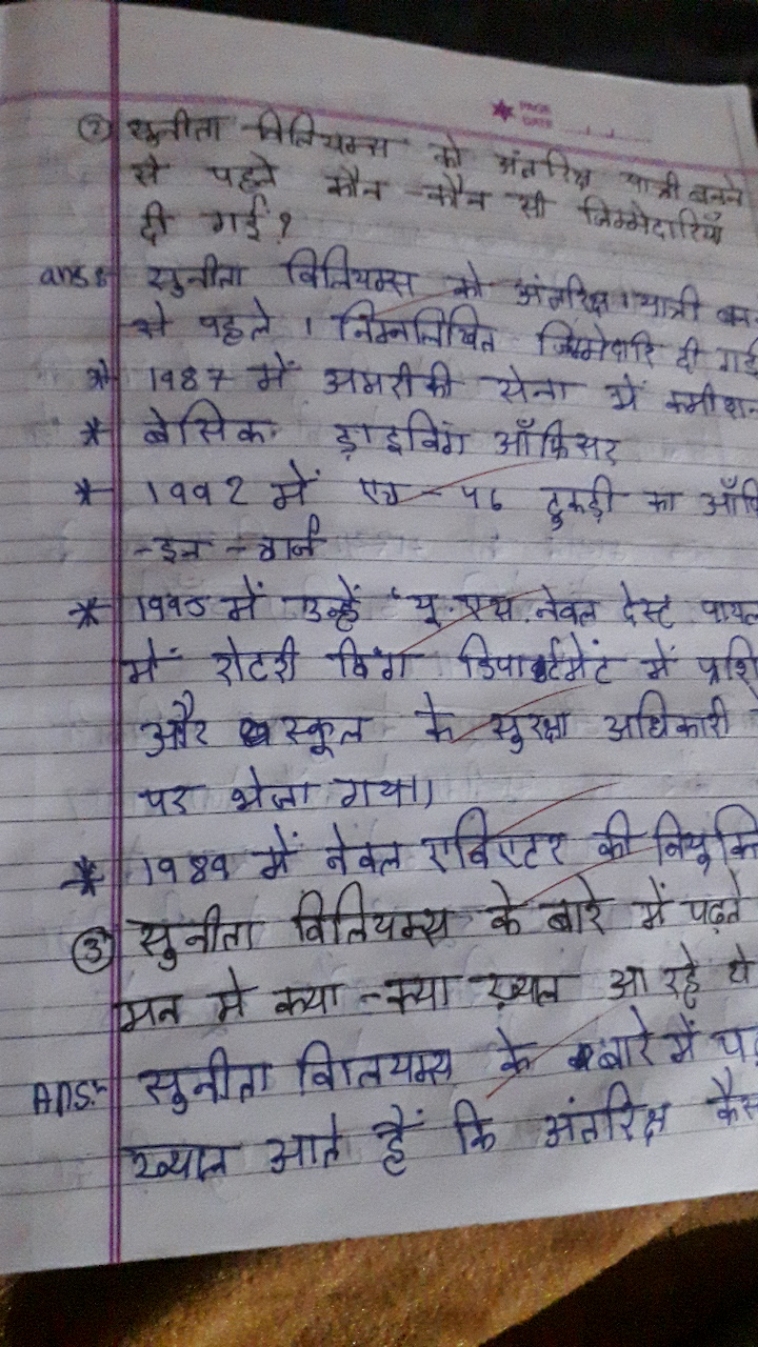 PAGE
DATE
② सुनीता विलियम्स को अंतरिक्ष यात्री बनने
से पहले कौन-कौन सी जिम्मेदारियाँ
दी गई?
ans: सुनीता विलियम्स को अंतरिक्ष यात्री बन
से पहले । निम्नलिखित जिम्मेवारि दी गई
* 1987 में अमरीकी सेना में कमीशन
* बेसिक ड्राइविंग ऑफिसर
* 1992 में एच-46 टुकड़ी का ऑफि
-इन-चार्ज
* 1995 में उन्हें यू.एस. नेवल टेस्ट पायल
में रोटरी विंग डिपार्टमेंट में प्रशि
और स्कूल के सुरक्षा अधिकारी
पर भेजा गया।
* 1989 में नेवल एविएटर की नियुक्ति
③ सुनीता विलियम्स के बारे में पढ़ते
मन मे क्या-क्या ख्याल आ रहे थे
Ans:- सुनीता विलियम्स के बारे में पढ़
ख्याल आते हैं कि अंतरिक्ष कैस